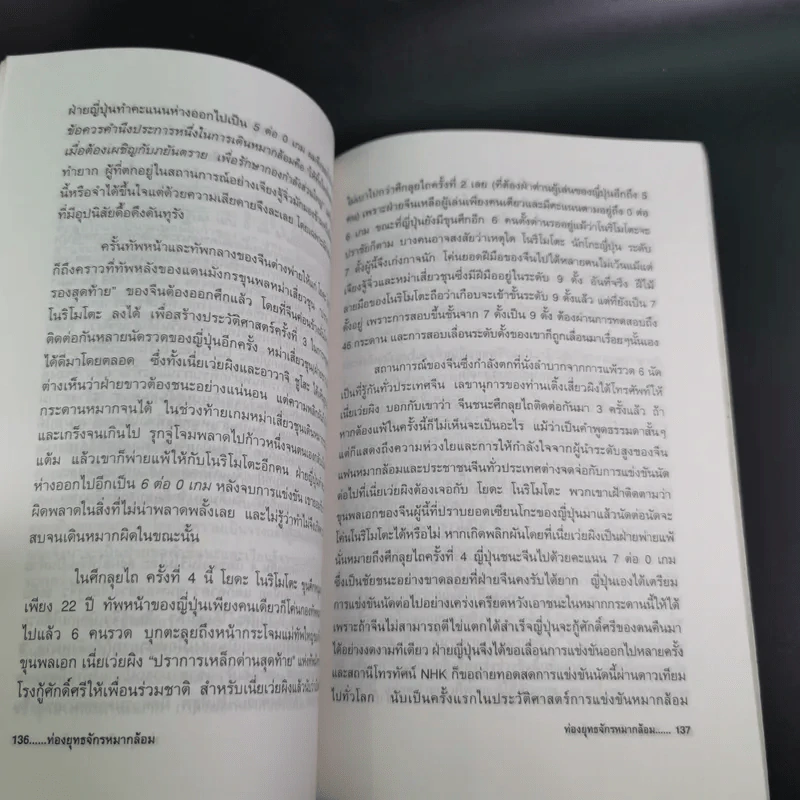 ฝ่ายญี่ปุ่นทำคะแนนห่างออกไปเป็น 5 ต่อ 0 เกม
ข้อควรคำนึงประการหนึ่งในการเดินหมากล้อมคือ
เมื่อต้องเผชิญกับภยันตราย เพื่อรักษากองกำลังส่วนใหญ่
ทำยาก ผู้ที่ตกอยู่ในสถานการณ์อย่างเจียงจู้จิ่ว
นี้หรือจำได้ขึ้นใจแต่ด้วยความเสียดายจึงละเลย
ที่มีอุปนิสัยดื้อดึงดันทุรัง
ครั้นทัพหน้าและทัพกลางของจีนต่างพ่ายให้แก่
ก็ถึงคราวที่ทัพหลังของแดนมังกรขุนพลหม่าเสี่ยวชุน
รองสุดท้าย" ของจีนต้องออกศึกแล้ว โดยที่จีน
โนริโมโตะ ลงได้ เพื่อสร้างประวัติศาสตร์ครั้งที่ 3
ติดต่อกันหลายนัดรวดของญี่ปุ่นอีกครั้ง หม่าเสี่ยวชุน
ได้ดีมาโดยตลอด ซึ่งทั้งเนี่ยเว่ยผิงและอาวาจิ ชูโซ
ต่างเห็นว่าฝ่ายขาวต้องชนะอย่างแน่นอน แต่ความ
กระดานหมากจนได้ ในช่วงท้ายเกมหม่าเสี่ยวชุน
และเกร็งจนเกินไป รุกจู่โจมพลาดไปก้าวหนึ่งจน
แต้ม แล้วเขาก็พ่ายแพ้ให้กับโนริโมโตะอีกคน
ห่างออกไปอีกเป็น 6 ต่อ 0 เกม หลังจบการแข่งขัน
ผิดพลาดในสิ่งที่ไม่น่าพลาดพลั้งเลย และไม่รู้ว่าทำไม
สบจนเดินหมากผิดในขณะนั้น
ในศึกลุยไถ ครั้งที่ 4 นี้ โยดะ โนริโมโตะ
เพียง 22 ปี ทัพหน้าของญี่ปุ่นเพียงคนเดียวก็โค่น
ไปแล้ว 6 คนรวด บุกตะลุยถึงหน้ากระโจมแม่ทัพใหญ่
ขุนพลเอก เนี่ยเว่ยผิง "ปราการเหล็กด่านสุดท้าย"
โรงกู้ศักดิ์ศรีให้เพื่อนร่วมชาติ สำหรับเนี่ยเว่ยผิงแล้ว
136......ท่องยุทธจักรหมากล้อม
ไม่เบาไปกว่าศึกลุยไถครั้งที่ 2 เลย (ที่ต้องฝ่าด่านผู้เล่นของญี่ปุ่นอีกถึง 5
คน) เพราะฝ่ายจีนเหลือผู้เล่นเพียงคนเดียวและมีคะแนนตามอยู่ถึง 0 ต่อ
6 เกม ขณะที่ญี่ปุ่นยังมีขุนศึกอีก 6 คนตั้งด่านรออยู่แม้ว่าโนริโมโตะจะ
ปราชัยก็ตาม บางคนอาจสงสัยว่าเหตุใด โนริโมโตะ นักโกะญี่ปุ่น ระดับ
7 ดั้งผู้นี้จึงเก่งกาจนัก โค่นยอดฝีมือของจีนไปได้หลายคนไม่เว้นแม้แต่
เจียงจู้จิ่วและหม่าเสี่ยวชุนซึ่งมีฝีมืออยู่ในระดับ 9 ดั้ง อันที่จริง ฝีไม้
ลายมือของโนริโมโตะถือว่าเกือบจะเข้าขั้นระดับ 9 ดั้งแล้ว แต่ที่ยังเป็น 7
ดั้งอยู่ เพราะการสอบขึ้นชั้นจาก 7 ดั้งเป็น 9 ดั้ง ต้องผ่านการทดสอบถึง
46 กระดาน และการสอบเลื่อนระดับดั้งของเขาก็ถูกเลื่อนมาเรื่อยๆนั้นเอง
สถานการณ์ของจีนซึ่งกำลังตกที่นั่งลำบากจากการแพ้รวด 6 นัด
เป็นที่รู้กันทั่วประเทศจีน เลขานุการของท่านเติ้งเสี่ยวผิงได้โทรศัพท์ให้
เนี่ยเว่ยผิง บอกกับเขาว่า จีนชนะศึกลุยไถติดต่อกันมา 3 ครั้งแล้ว ถ้า
หากต้องแพ้ในครั้งนี้ก็ไม่เห็นจะเป็นอะไร แม้ว่าเป็นคำพูดธรรมดาสั้นๆ
แต่ก็แสดงถึงความห่วงใยและการให้กำลังใจจากผู้นำระดับสูงของจีน
แฟนหมากล้อมและประชาชนจีนทั่วประเทศต่างจดจ่อกับการแข่งขันนัด
ต่อไปที่เนี่ยเว่ยผิงต้องเจอกับ โยดะ โนริโมโตะ พวกเขาเฝ้าติดตามว่า
ขุนพลเอกของจีนผู้นี้ที่ปราบยอดเซียนโกะของญี่ปุ่นมาแล้วนัดต่อนัดจะ
โค่นโนริโมโตะได้หรือไม่ หากเกิดพลิกผันโดยที่เนี่ยเว่ยผิงเป็นฝ่ายพ่ายแพ้
นั่นหมายถึงศึกลุยไถครั้งที่ 4 ญี่ปุ่นชนะจีนไปด้วยคะแนน 7 ต่อ 0 เกม
ซึ่งเป็นชัยชนะอย่างขาดลอยที่ฝ่ายจีนคงรับได้ยาก ญี่ปุ่นเองได้เตรียม
การแข่งขันนัดต่อไปอย่างเคร่งเครียดหวังเอาชนะในหมากกระดานนี้ให้ได้
เพราะถ้าจีนไม่สามารถตีไข่แตกได้สำเร็จญี่ปุ่นจะกู้ศักดิ์ศรีของตนคืนมา
ได้อย่างงดงามทีเดียว ฝ่ายญี่ปุ่นจึงได้ขอเลื่อนการแข่งขันออกไปหลายครั้ง
และสถานีโทรทัศน์ NHK ก็ขอถ่ายทอดสดการแข่งขันนัดนี้ผ่านดาวเทียม
ไปทั่วโลก นับเป็นครั้งแรกในประวัติศาสตร์การแข่งขันหมากล้อม
ท่องยุทธจักรหมากล้อม...... 137